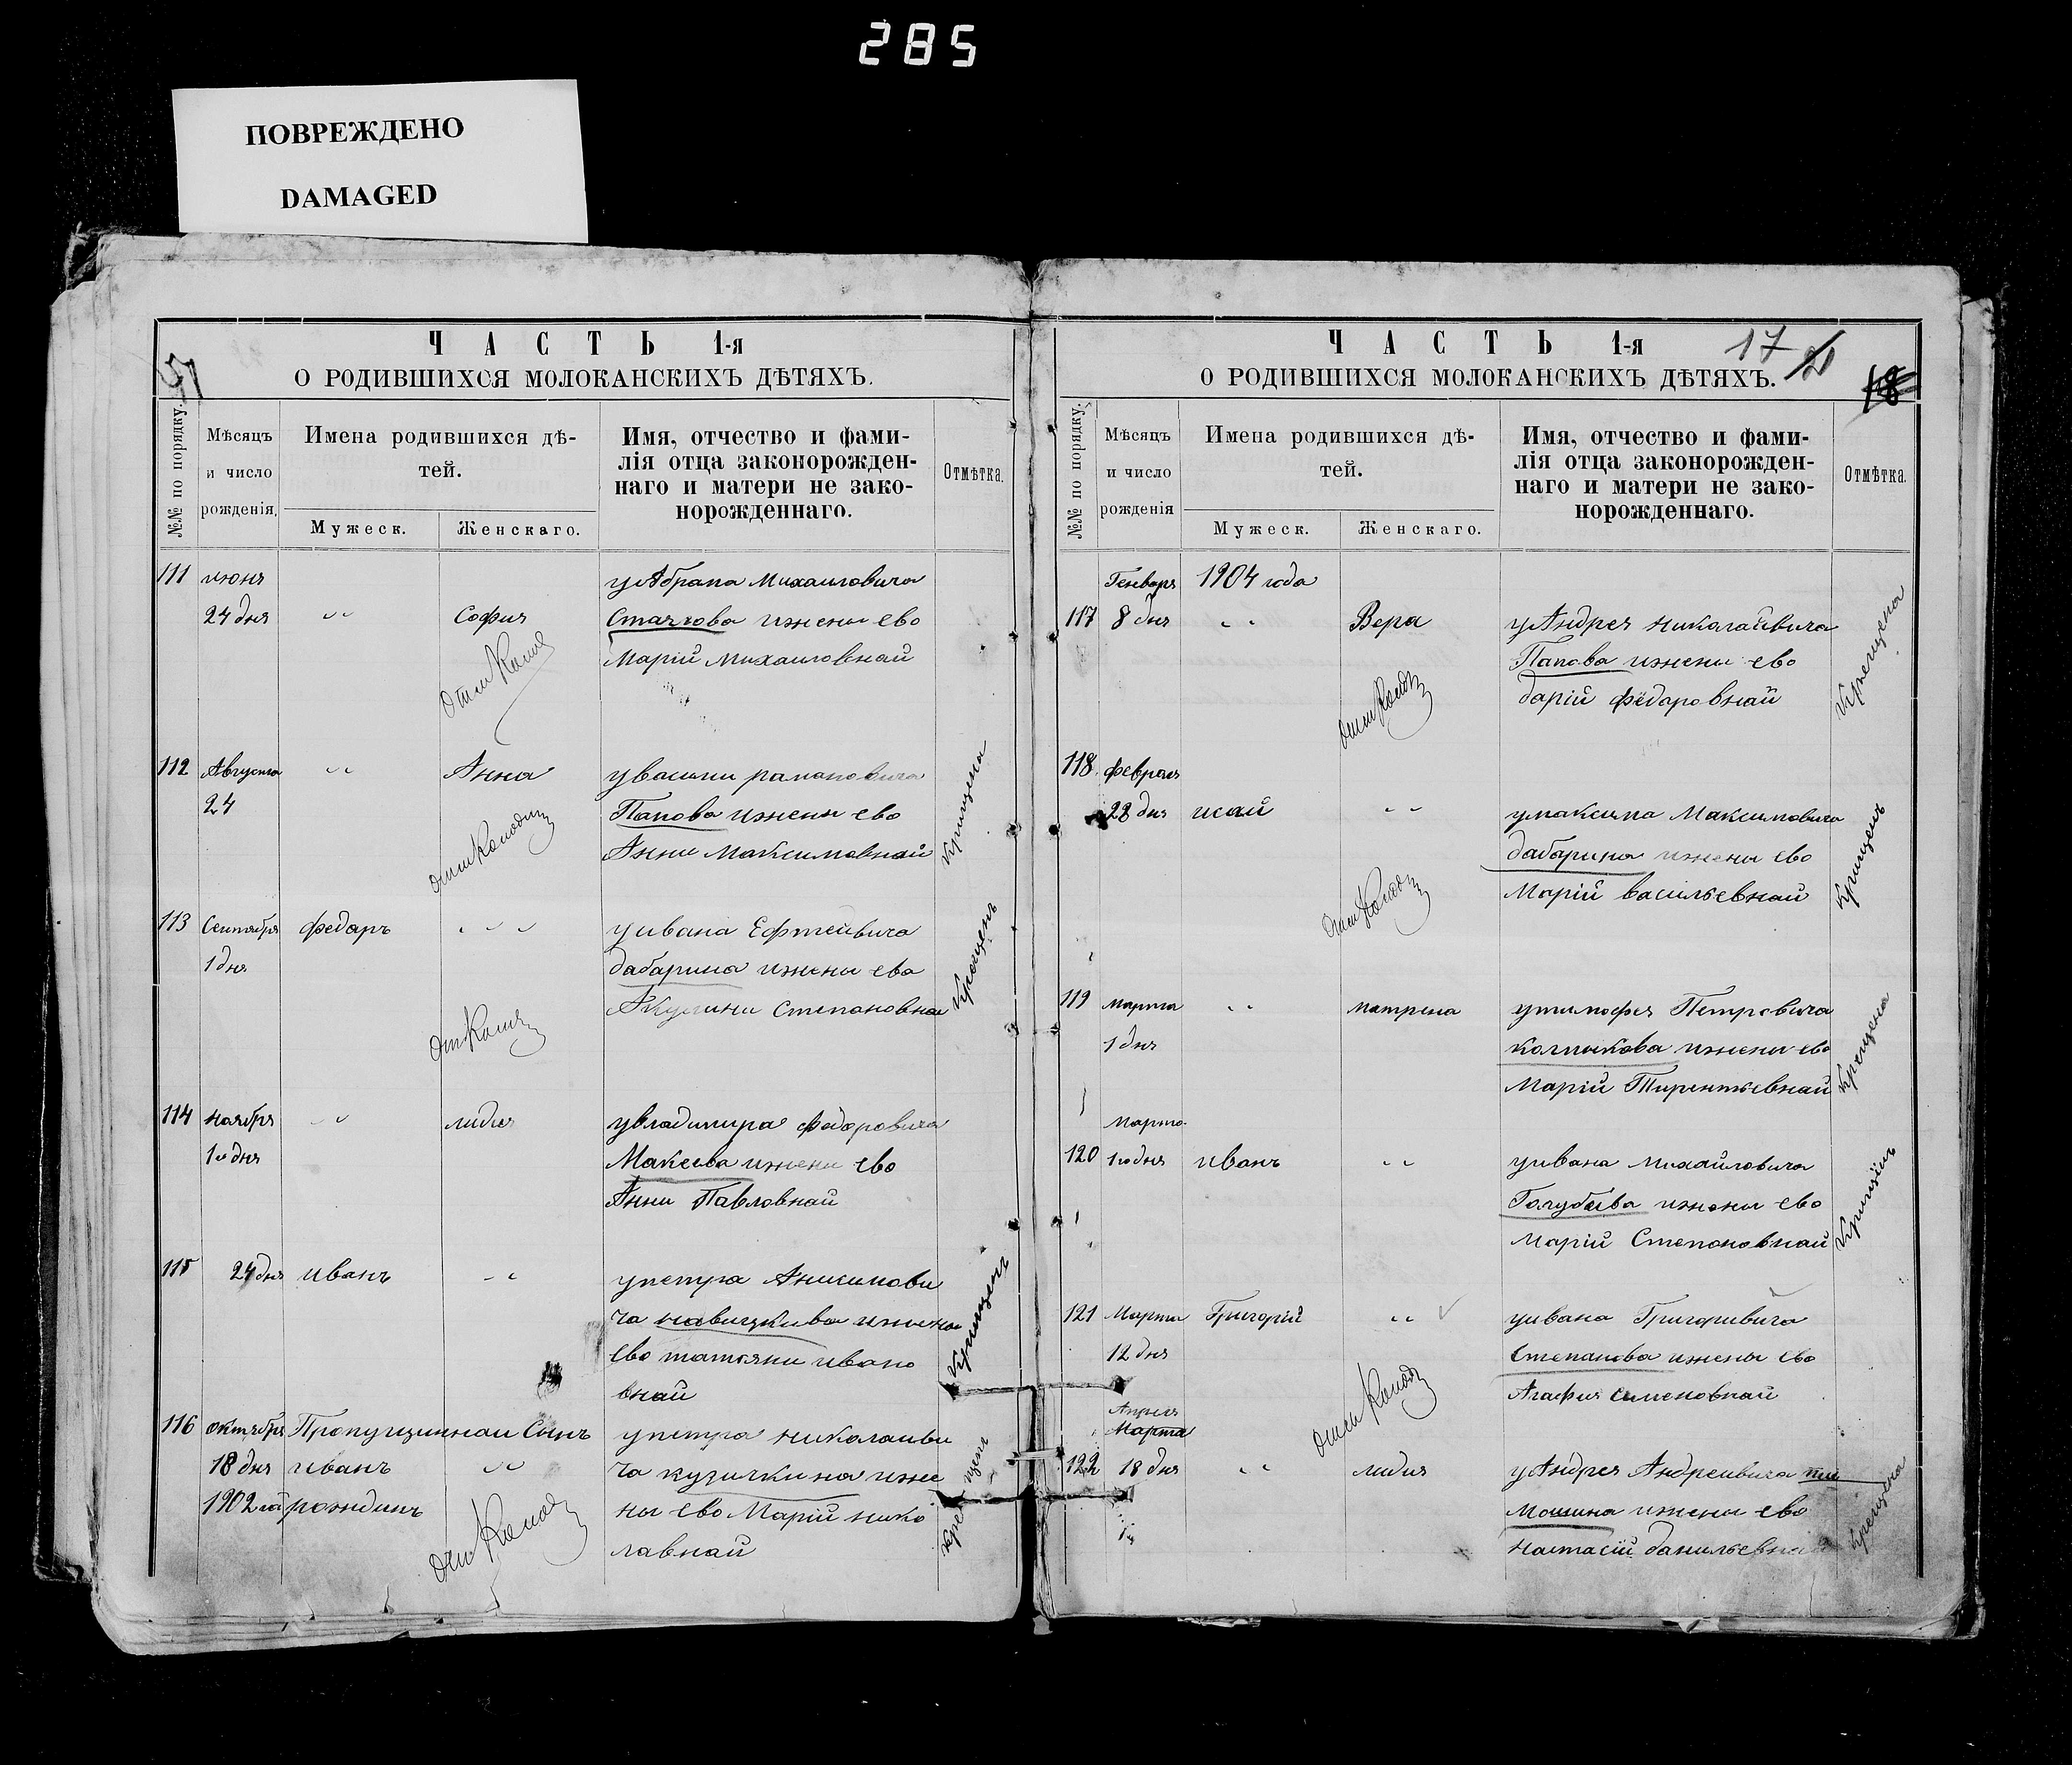 285
ПОВРЕЖДЕНО
DAMAGED
ЧАСТЬ 1-я
О РОДИВШИХСЯ МОЛОКАНСКИХЪ ДѢТЯХЪ.
№№ по порядку.
Мѣсяцъ
и число
рожденія.
Имена родившихся дѣ-
тей.
Мужеск.
Женскаго.
Имя, отчество и фами-
лія отца законорожден-
наго и матери не зако-
норожденнаго.
Отмѣтка.
111 июня уАбрама Михаиловича
24 дня София ижены ево
Марiй Михаиловнай
112 Августа Анна увасили рамановича
24 Папова ижены ево
Анны Максимовнай
Крищена
113 Сентября федаръ уивана Ефтеивича
1 дня дабарина ижены ево
Акулини Степановнаи
Крещенъ
114 Ноября лидия увладимира федоровича
1го дня Макеева ижены ево
Анны Павловнай
115 24 дня иванъ упетра Анисимови
ча ижены
ево татяни ивано
внай
Крищенъ
116 октября Пропущиннаи Сынъ упетра николаиви
18 дня иванъ ча кузичкина иже
1902 рождинъ ны ево Марiй нико
лавнай
Кре щенъ
ЧАСТЬ 1-я
17
О РОДИВШИХСЯ МОЛОКАНСКИХЪ ДѢТЯХЪ.
18
№№ по порядку.
Мѣсяцъ
и число
рожденія
Имена родившихся дѣ-
тей.
Мужеск.
Женскаго.
Имя, отчество и фами-
лія отца законорожден-
наго и матери не зако-
норожденнаго.
Отмѣтка.
Генваря 1904 года
117 8 дня Вера уАндрея николаивича
Папова ижены ево
дарiй фёдаровнай
Крещена
118 февраля
28 дня исаи умаксима Максимовича
дабарина ижены ево
Марiй васильевнай
Крищенъ
119 марта матрена утимофея Петровича
1 дня колпикова ижены ево
Марiй Тирентьевнай
Крещена
марта
120 1го дня иванъ уивана михайловича
Голубева ижены ево
Марiй Степановнай
121 Марта Григорiй уивана Григоривича
12 дня Степанова ижены ево
Агафия Семеновнай
Апреля
Марта
122 18 дня лидия уАндрея Андреивича ти
мошина ижены ево
настасiй данильевнай
Крещена